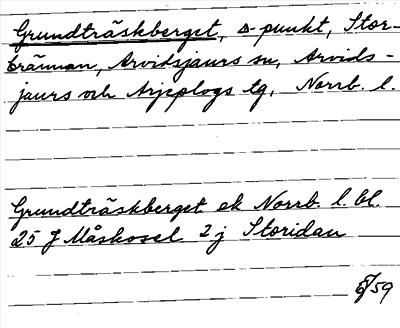 Grundträskberget, △-punkt, Stor-
brännan, Arvidsjaurs sn, Arvids-
jaurs och Arjeplogs tg, Norrb. l.
Grundträskberget ek Norrb. l. bl.
25 J Måskosel 2 j Storidan
/59